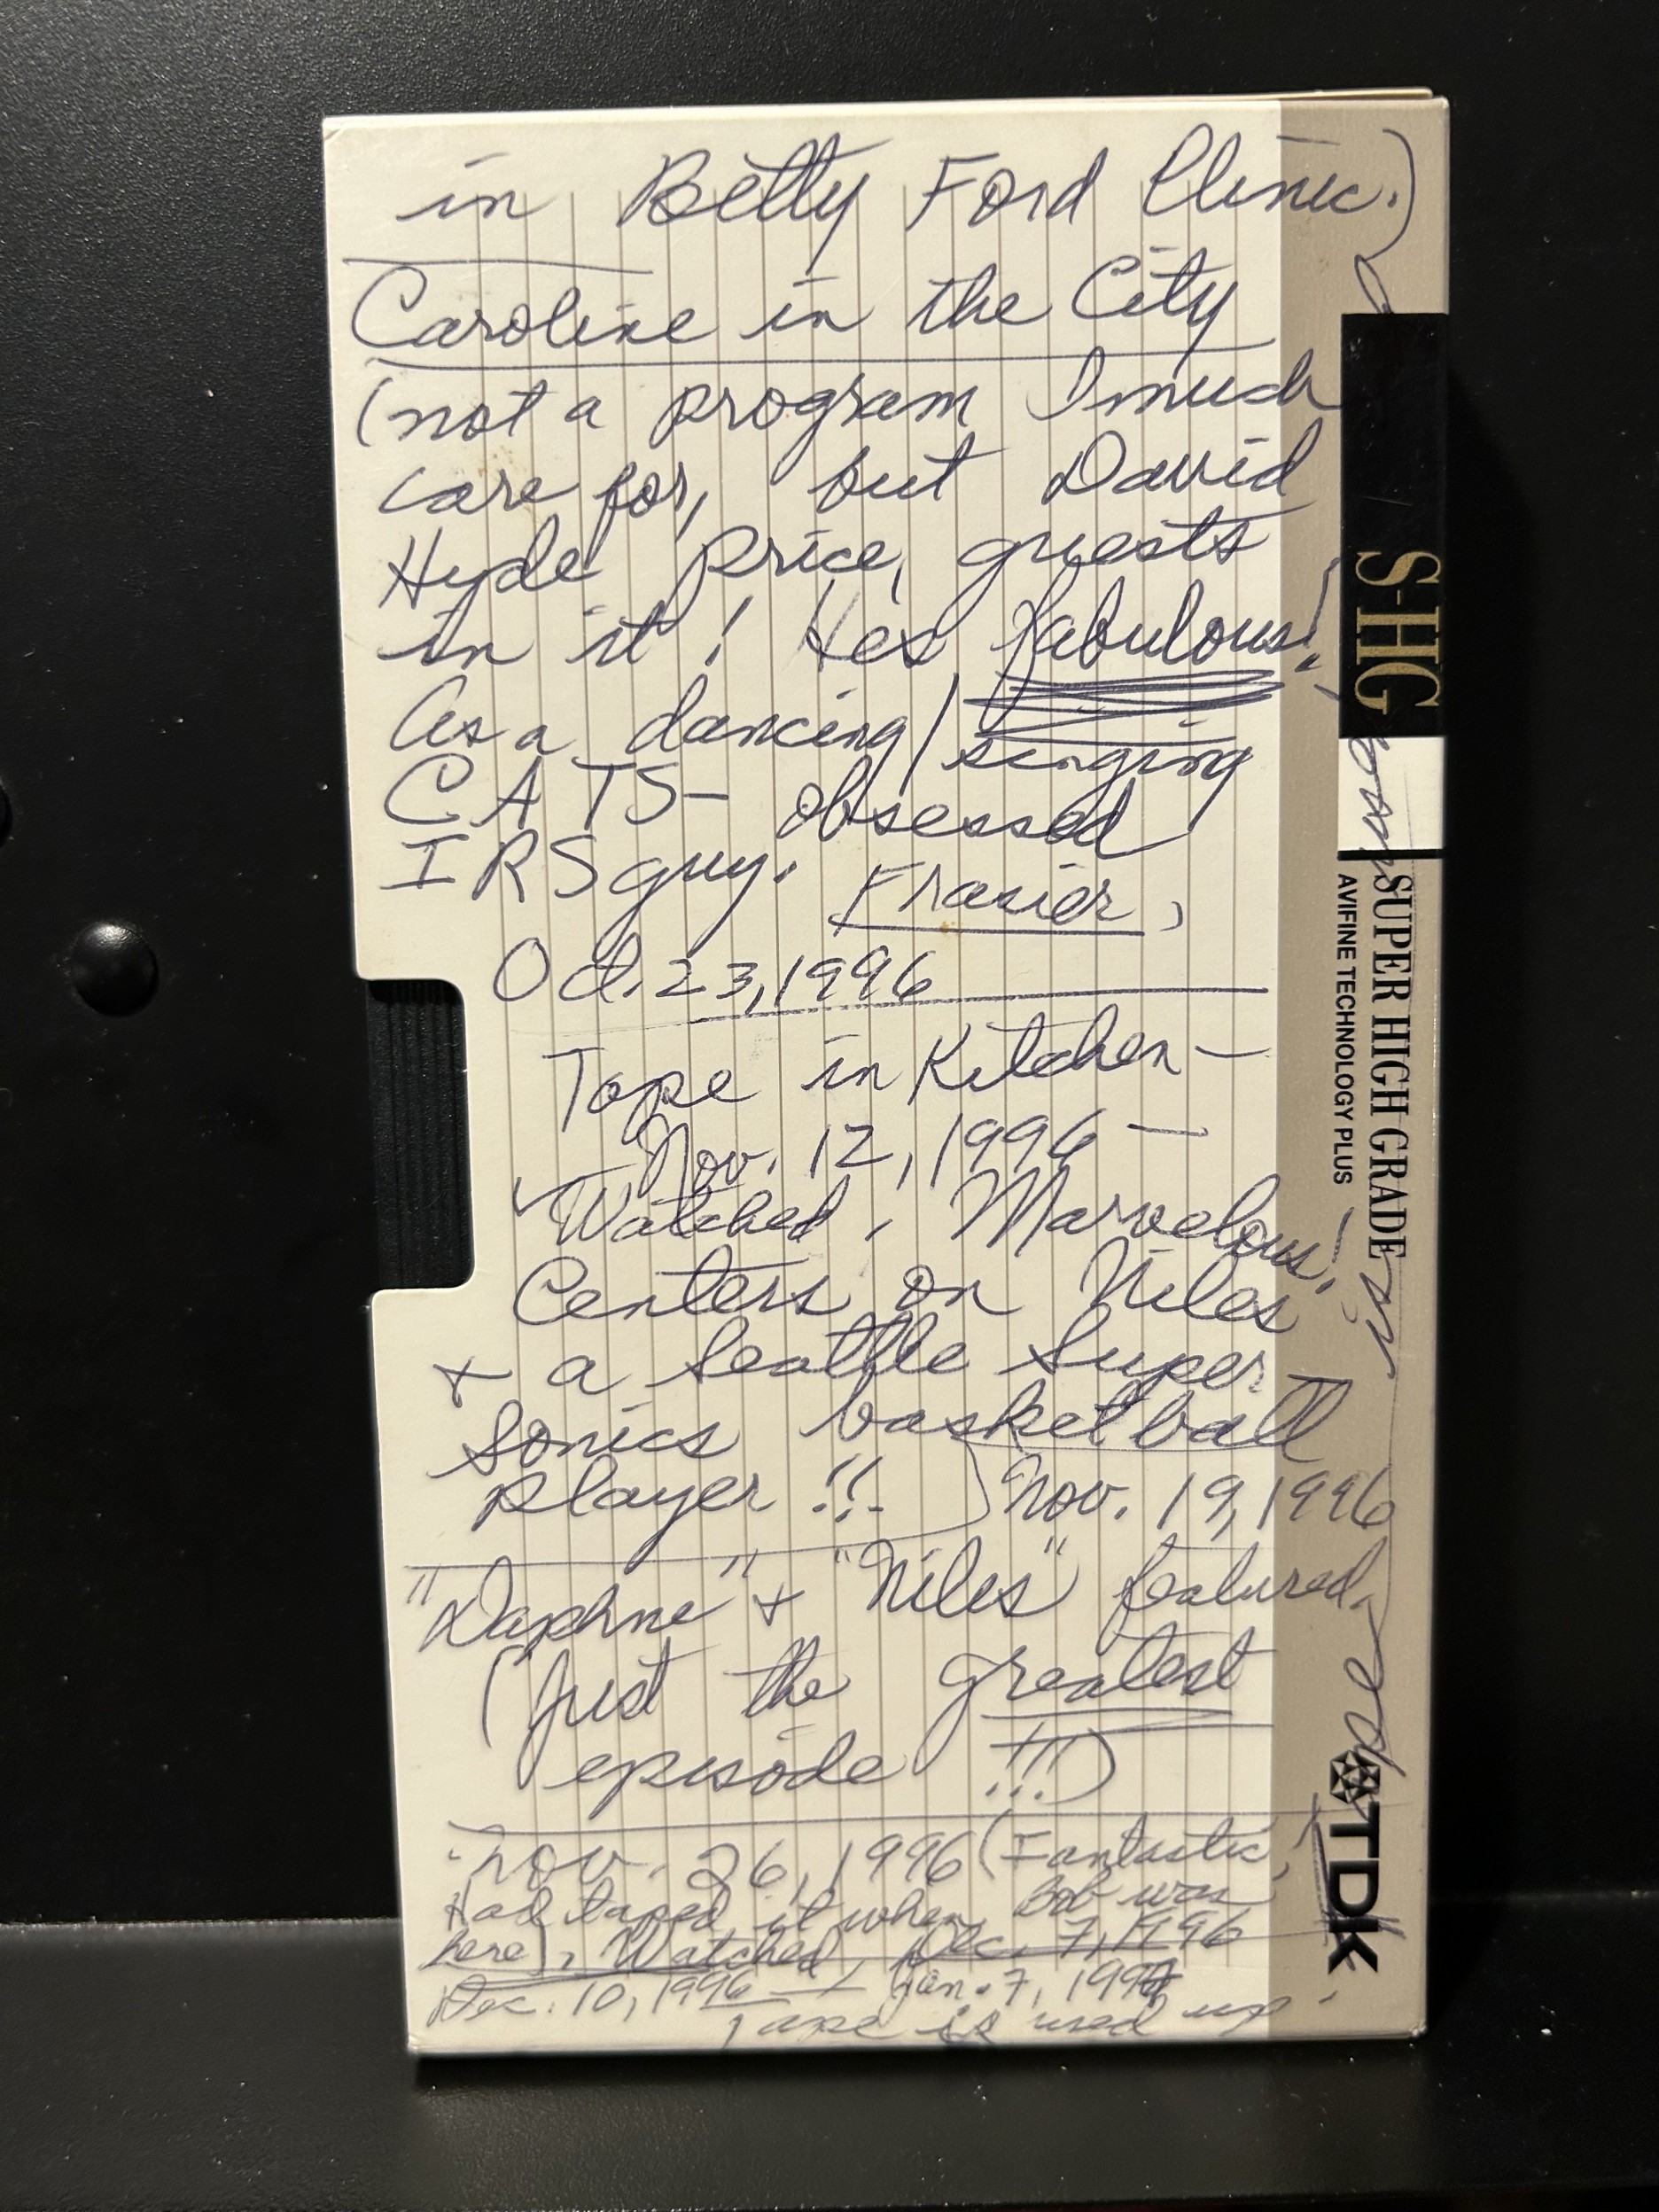 in Betty Ford Clinic.)
Caroline in the City
(not a program I much
care for, but David
Hyde Price, guests
in it! He's fabulous!
As a dancing/singing
CATS- obsessed
IRS guy. Frasier,
Oct. 23, 1996
Tape in Kitchen -
Nov. 12, 1996 -
Watched. Marvelous!
Centers on Niles
+ a Seattle Super
Sonics basketball
player !!! Nov. 19, 1996
"Daphne" + "Niles" featured
(just the greatest
episode !!!)
Nov. 26, 1996 (Fantastic!
Had taped it when Bob was
here). Watched Dec. 7, 1996
Dec. 10, 1996 + Jan. 7, 1997
Tape is used up.
S-HG
SUPER HIGH GRADE
AVIFINE TECHNOLOGY PLUS
TDK